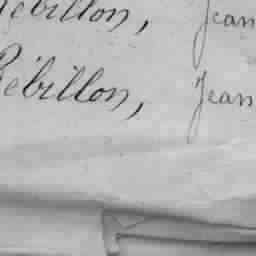 Rébillon, Jean
Rébillon, Jean